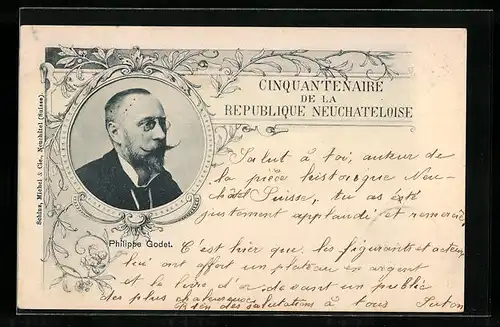 CINQUANTENAIRE
DE LA
REPUBLIQUE NEUCHATELOISE
Schlup, Michel & Cie., Neuchâtel (Suisse)
Philippe Godet.
Salut à toi, auteur de
la pièce historique Neu-
châtel Suisse, tu as été
justement applaudi et remercié
C'est hier que les figurants et acteurs
lui ont offert un plateau en argent
et le livre d'or devant un public
des plus chaleureux
Bien des salutations à tous